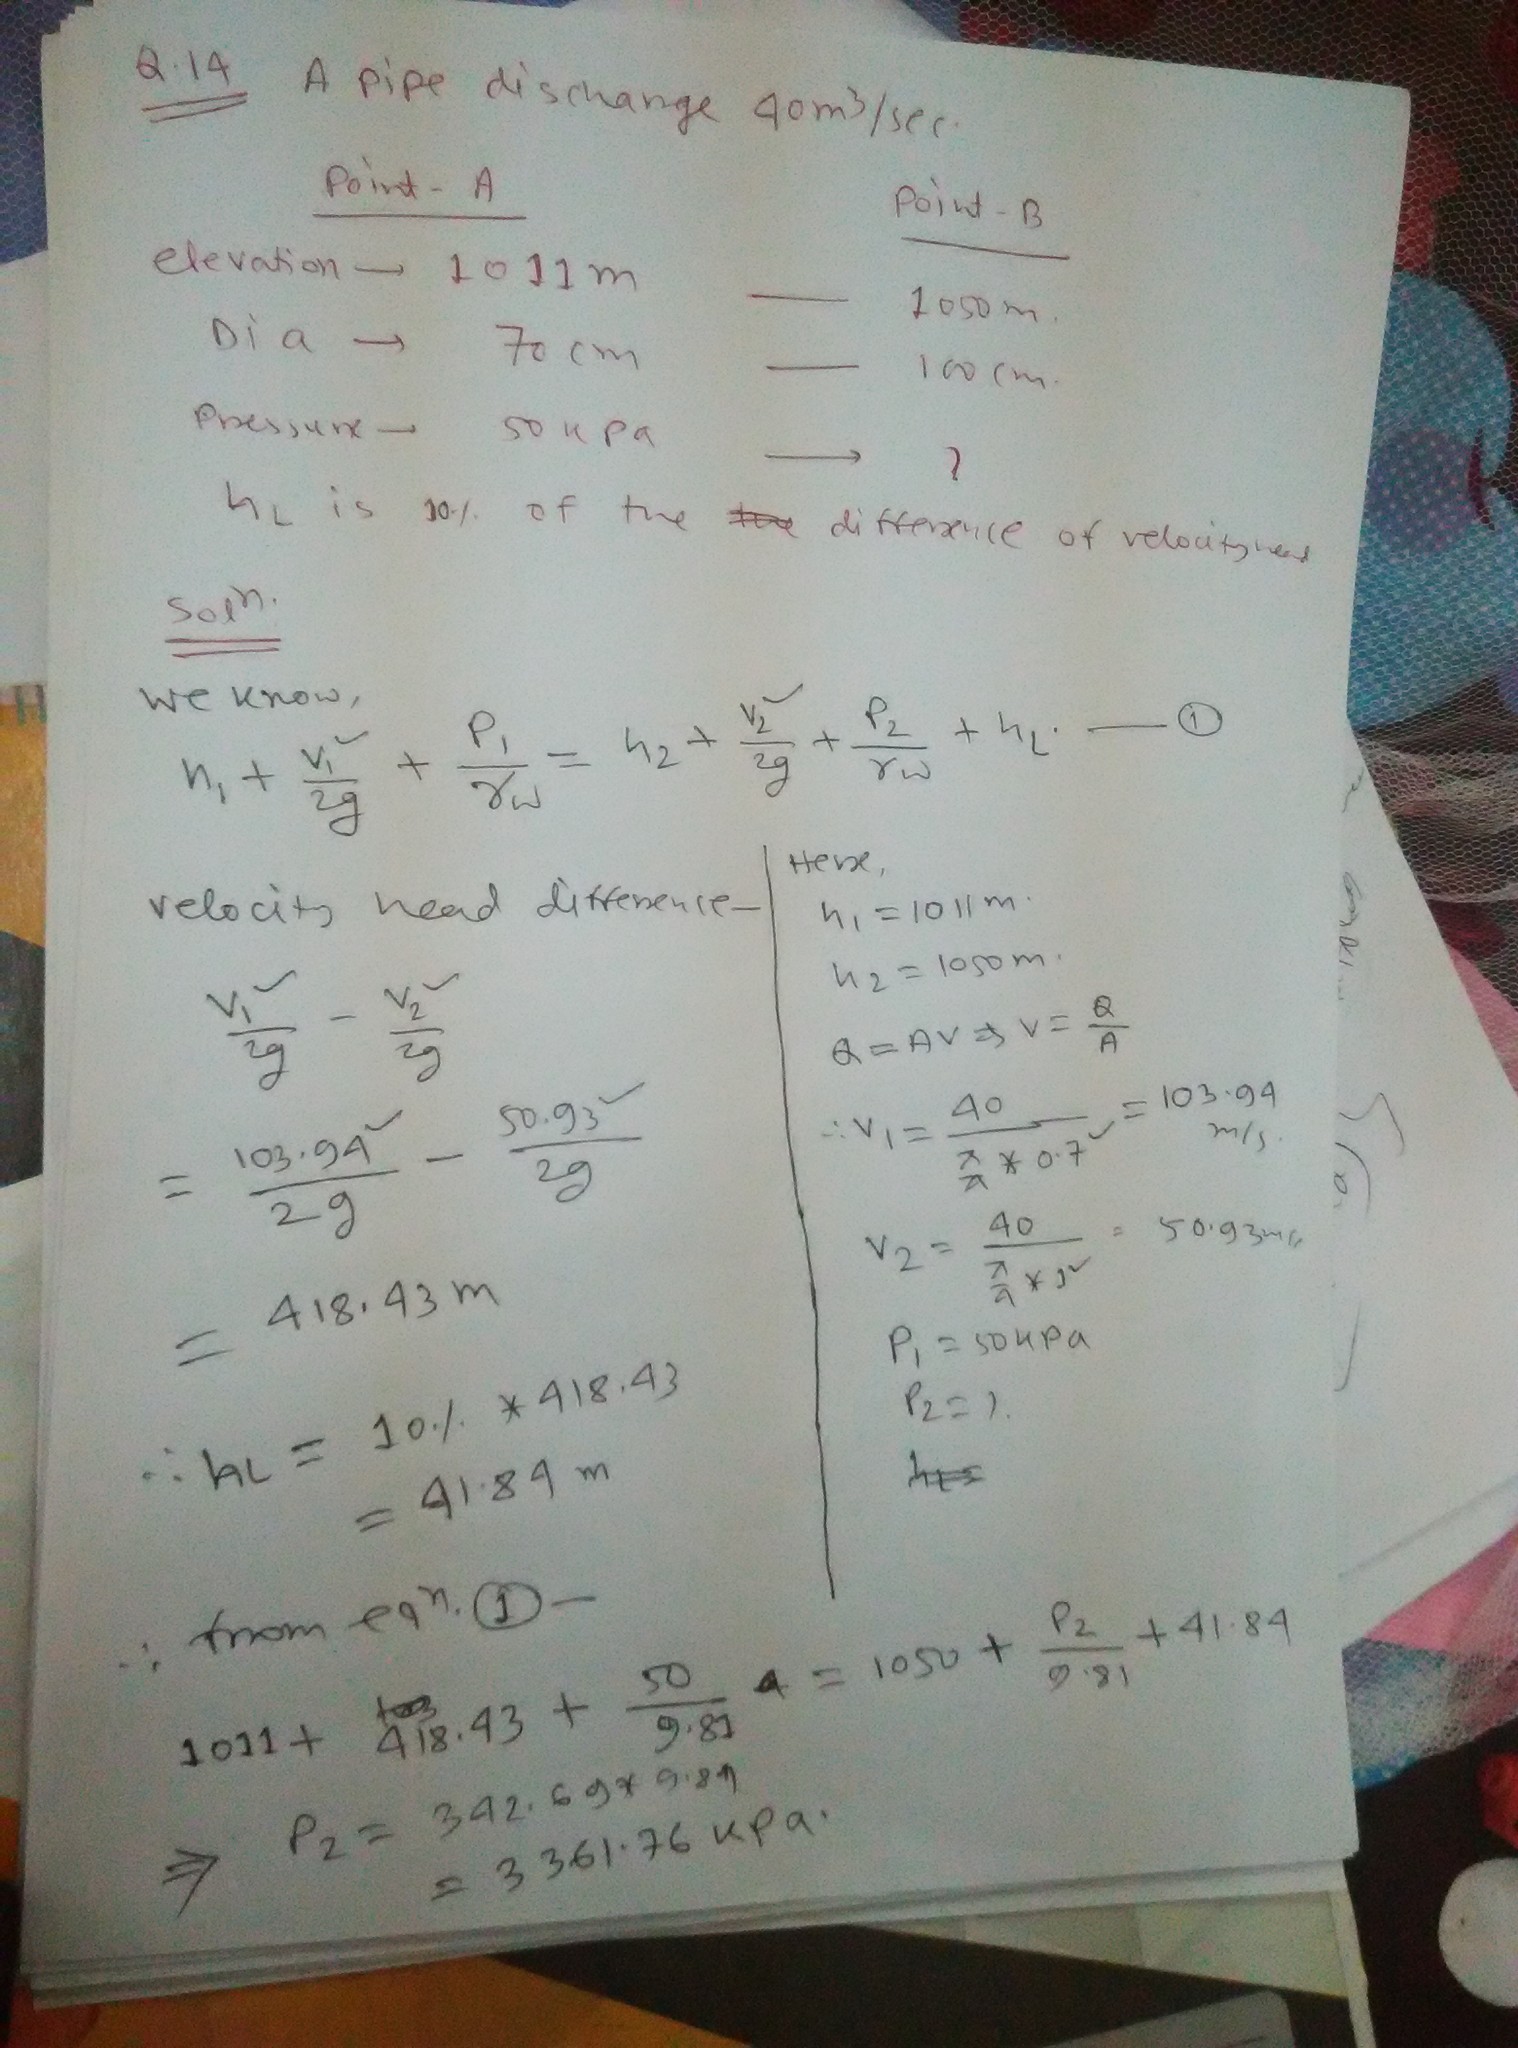 Q.14 A pipe dischange 40m³/sec.
Point-A Point-B
elevation → 1011m — 1050m.
Dia → 70cm — 100cm.
Pressure → 50 kpa → ?
hL is 10% of the difference of velocity head
Solⁿ.
we know,
h₁ + V₁²/2g + P₁/γw = h₂ + V₂²/2g + P₂/γw + hL. — ①
velocity head difference—
V₁²/2g - V₂²/2g
= 103.94²/2g - 50.93²/2g
= 418.43 m
∴ hL = 10% * 418.43
= 41.84 m
Here,
h₁ = 1011m.
h₂ = 1050m.
Q = AV ⇒ V = Q/A
∴ V₁ = 40/(π/4 * 0.7²) = 103.94 m/s.
V₂ = 40/(π/4 * 1²) = 50.93m/s
P₁ = 50kpa
P₂ = ?.
∴ from eqⁿ. ① —
1011 + 418.43 + 50/9.81 = 1050 + P₂/9.81 + 41.84
⇒ P₂ = 342.69 * 9.81
= 3361.76 kpa.